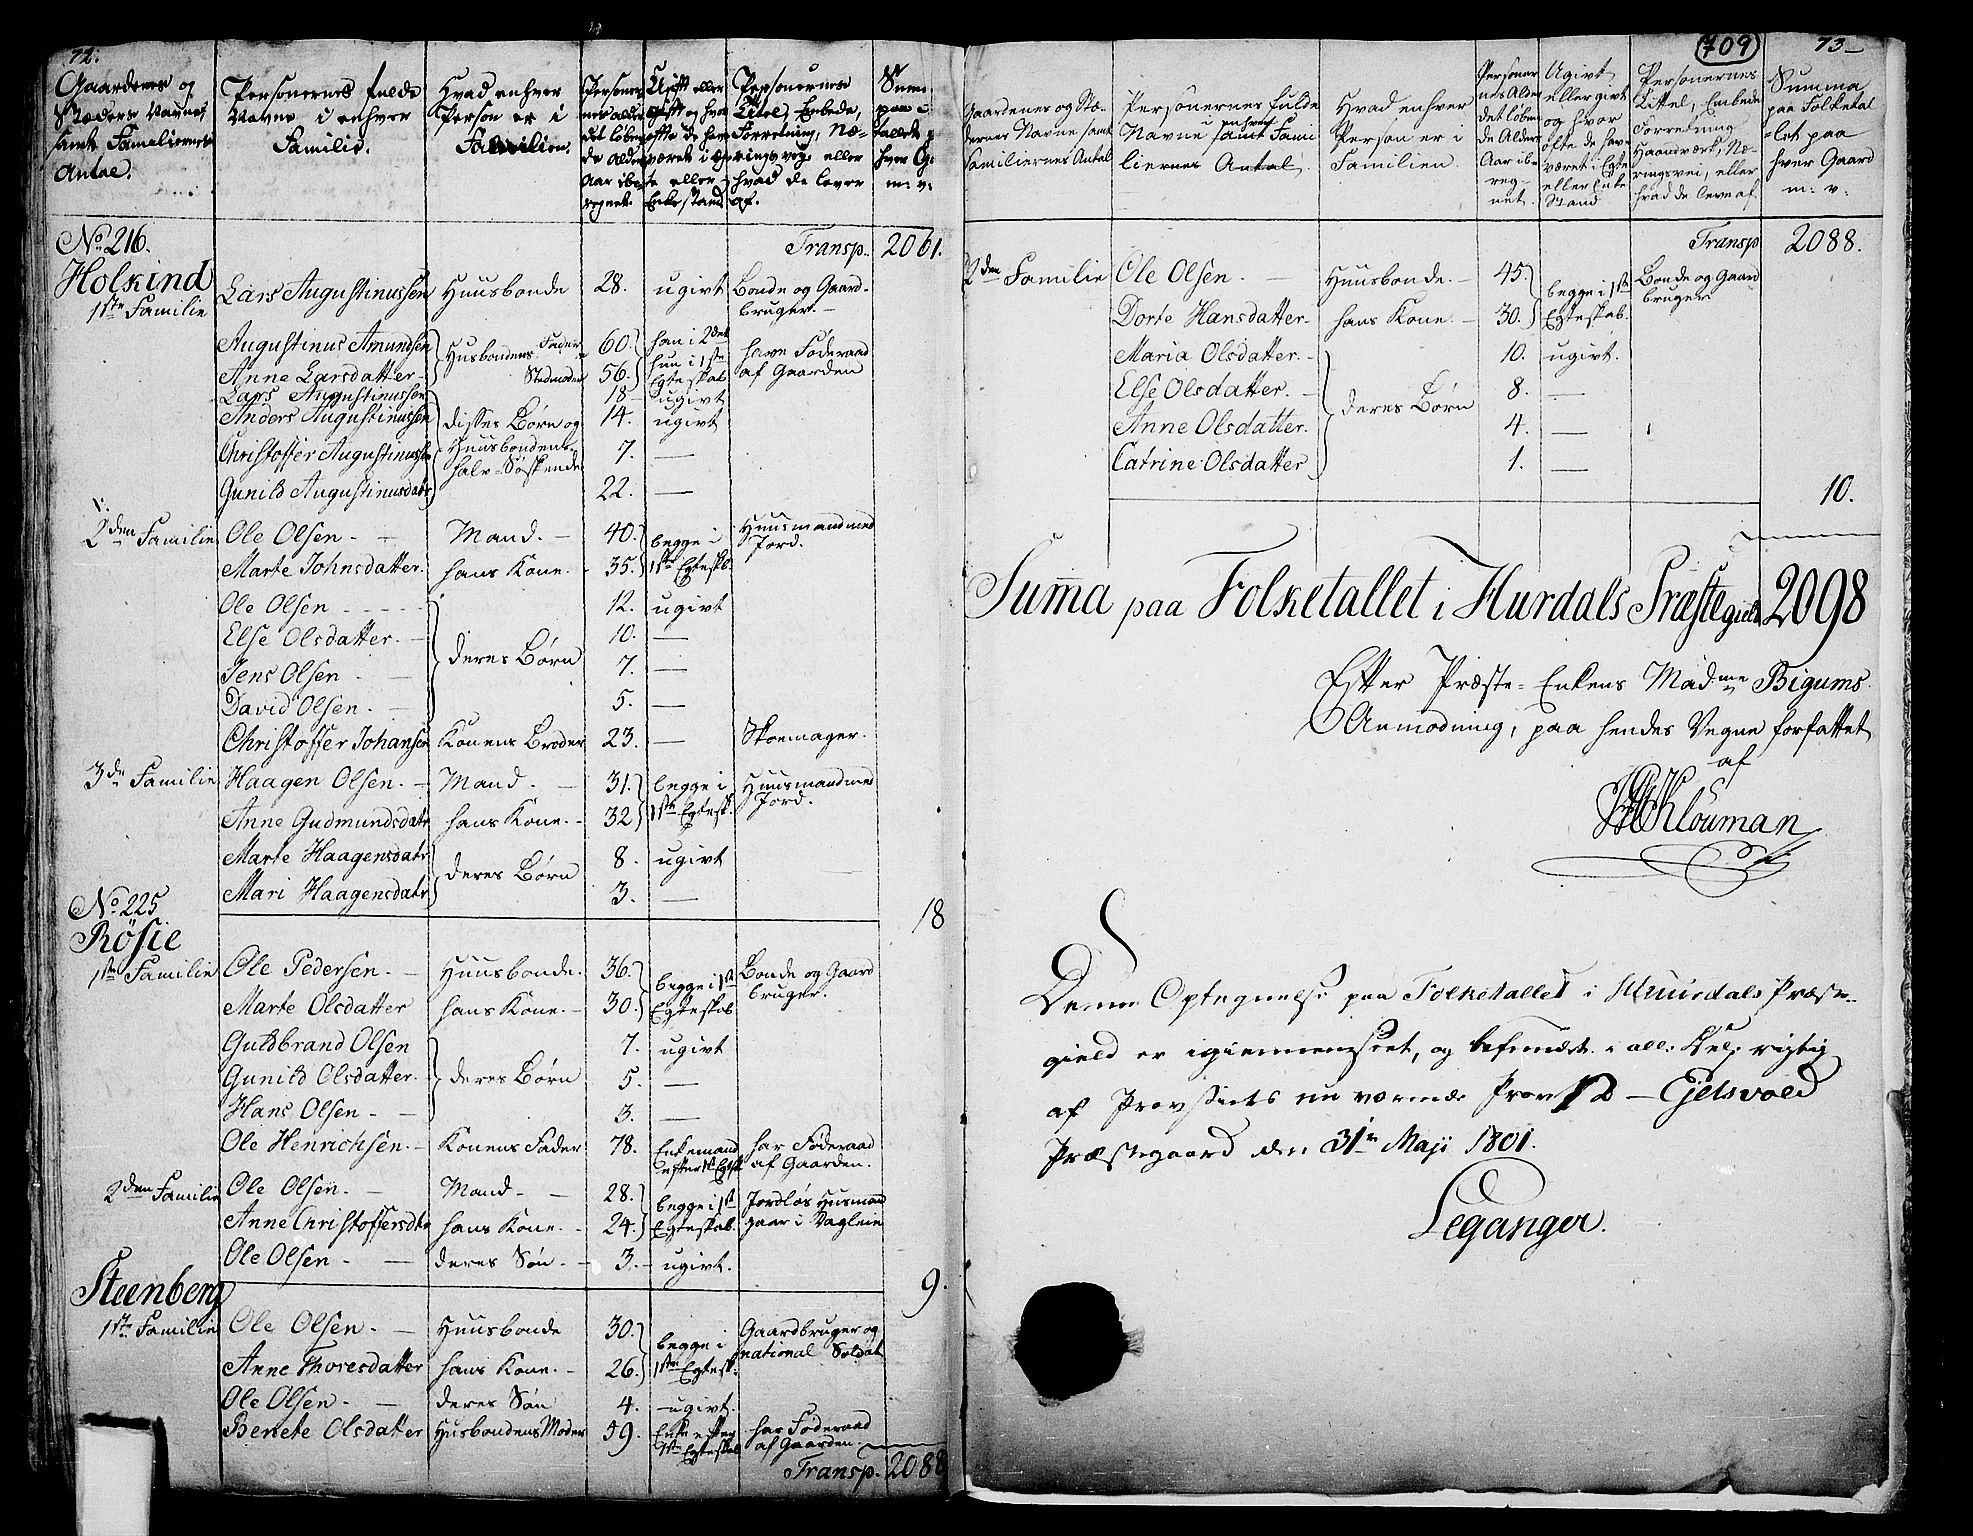 72.
Gaardenes og Stædernes Navne, samt Familiernes Antal.
Personernes fulde Navne i enhver Familie.
Hvad enhver Person er i Familien.
Personernes Alder, det løbende Alders Aar iberegnet
Ugift eller gift og hvor ofte de have været i Egte eller Enkestand
Personernes Titel, Embede, Forretning, Næringsvej eller hvad de lever af.
No. 216. Transp. 2061.
Holkind
1ste Familie Lars Augustinussen Huusbonde 28. ugivt Bonde og Gaardbruger.
Augustinus Amundsen Husbondens Fader 60. han i 2det
Anne Larsdatter Stedmoder 56. hun i 1ste Egteskab have Føderaad af Gaarden
Lars Augustinussen 18 ugivt
Anders Augustinussen disses Børn og 14. ugivt
Christoffer Augustinussen Huusbondens 7. —
Gunild Augustinusdatr halv-Søskende 22. —
2den Familie Ole Olsen. Mand. 40. begge i Huusmand med Jord.
Marte Johnsdatter. hans Kone. 35. 1ste Egtesk.
Ole Olsen 12. ugivt
Else Olsdatter. 10. —
Jens Olsen deres Børn 7. —
David Olsen. 5. —
Christoffer Johansen Konens Broder 23. — Skoemager.
3de Familie Haagen Olsen. Mand. 31. begge i Huusmand med Jord.
Anne Gudmundsdatr hans Kone. 32 1ste Egtesk.
Marte Haagensdatr deres Børn 8. ugivt
Mari Haagensdatr 3. —
18
No. 225
Røsie
1ste Familie Ole Pedersen. Huusbonde. 36. begge i 1ste Bonde og Gaard
Marte Olsdatter hans Kone. 30. Egteskab bruger.
Guldbrand Olsen 7. ugivt
Gunild Olsdatter. deres Børn 5. —
Hans Olsen 3. —
Ole Henrichsen. Konens Fader 78. Enkemand efter 1ste Egtesk har Føderaad af Gaarden.
2den Familie Ole Olsen. Mand. 28. begge i 1ste Jordløs Husmand
Anne Christoffersdtr hans Kone. 24. Egteskab. gaar i Dagleie
Ole Olsen deres Søn 3. ugivt.
9.
Steenberg
1ste Familie Ole Olsen. Huusbonde 30. begge i Gaardbruger og
Anne Thoresdatter hans Kone. 26. 1ste Egtesk. national Soldat
Ole Olsen. deres Søn 4. ugivt.
Benete Olsdatter Husbondens Moder 59. Enke efter 1ste Egteskab har Føderaad af Gaarden.
Transp. 2088
(409) 73
Gaardenes og Stædernes Navne samt Familiernes Antal
Personernes fulde Navne i enhver samt Familiernes Antal.
Hvad enhver Person er i Familien
Personernes Alder det løbende Alders Aar iberegnet.
Ugivt eller givt og hvor ofte de have været i Egte eller Enke Stand
Personernes Tittel, Embede Forretning Haandværk, Næringsvei, eller hvad de leve af
Summa paa Folketallet paa hver Gaard m: v:
Transp 2088.
2den Familie Ole Olsen. Huusbonde. 45. begge i 1ste Bonde og Gaard
Dorte Hansdatter hans Kone 30. Egteskab. bruger
Maria Olsdatter. 10. ugivt.
Else Olsdatter. deres Børn 8. —
Anne Olsdatter. 4. —
Catrine Olsdatter 1. —
10.
Suma paa Folketallet i Hurdals Præstegield 2098
Efter Præste-Enkens Madme Bigums
Anmodning, paa hendes Vegne forfattet
af
Klouman
Denne Optegnelse paa Folketallet i Huurdals Præste-
gield er igiennemseet, og befundet i alle Dele rigtig
af Provstiets nu værende Provst — Ejdsvold
Præstegaard den 31te Maji 1801.
Leganger.